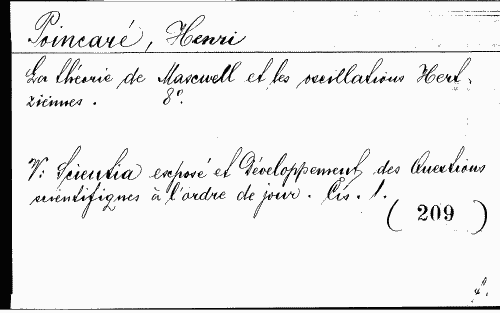 Poincaré, Henri
La théorie de Maxwell et les oscillations Hert-
ziennes. 8°.
V: Scientia exposé et Développement des Questions
scientifiques à l'ordre de jour. Čís. 1.
( 209 )